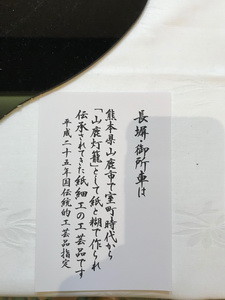 長塀・御所車は
熊本県山鹿市で室町時代から
「山鹿灯籠」として紙と糊で作られ
伝承されてきた紙細工の工芸品です
平成二十五年国伝統的工芸品指定